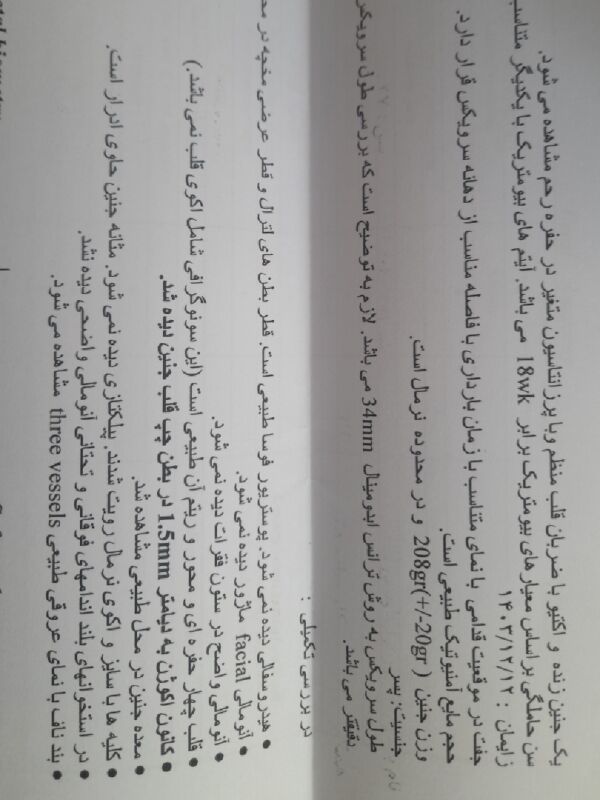 یک جنین زنده و اکتیو با ضربان قلب منظم وبا پرزانتاسیون متغیر در حفره رحم مشاهده می شود.
سن حاملگی براساس معیارهای بیومتریک برابر 18wk می باشد. آیتم های بیومتریک با یکدیگر متناسب
زایمان : ۱۴۰۳/۱۲/۱۲
جفت در موقعیت قدامی با نمای متناسب با زمان بارداری با فاصله مناسب از دهانه سرویکس قرار دارد.
حجم مایع آمنیوتیک طبیعی است.
وزن جنین ( 208gr(+/-20gr و در محدوده نرمال است.
جنسیت: پسر
طول سرویکس به روش ترانس ابدومینال 34mm می باشد. لازم به توضیح است که بررسی طول سرویکس
دقیقتر می باشد.
در بررسی تکمیلی :
● هیدروسفالی دیده نمی شود. پوستریور فوسا طبیعی است. قطر بطن های لترال و قطر عرضی مخچه در
● آنومالی facial ماژور دیده نمی شود.
● آنومالی واضح در ستون فقرات دیده نمی شود.
● قلب چهار حفره ای و محور و ریتم آن طبیعی است (این سونوگرافی شامل اکوی قلب نمی باشد.)
● کانون اکوژن به دیامتر 1.5mm در بطن چپ قلب جنین دیده شد.
● معده جنین در محل طبیعی مشاهده شد.
● کلیه ها با سایز و اکوی نرمال رویت شدند. پیلکتازی دیده نمی شود. مثانه جنین حاوی ادرار است.
● در استخوانهای بلند اندامهای فوقانی و تحتانی آنومالی واضحی دیده نشد.
● بند ناف با نمای عروقی طبیعی three vessels مشاهده می شود.